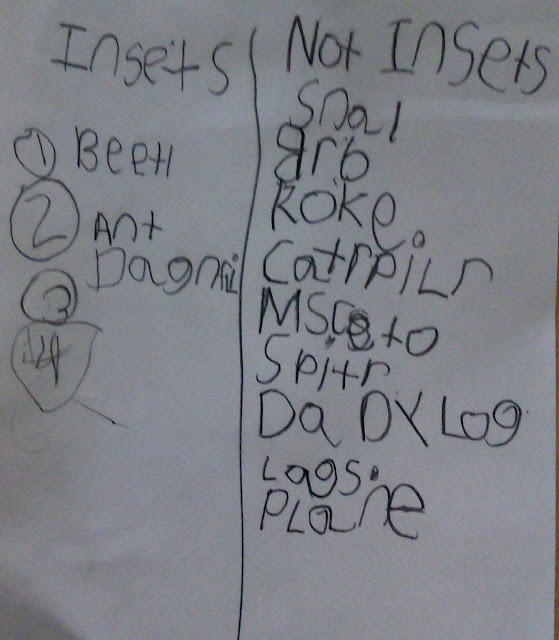 Insets
① Beetl
② Ant
③ Dagnfli
④
Not Insets
Snal
grb
Roke
Catrpilr
MSCeto
Spitr
DaDY Log
Lags.
PLane